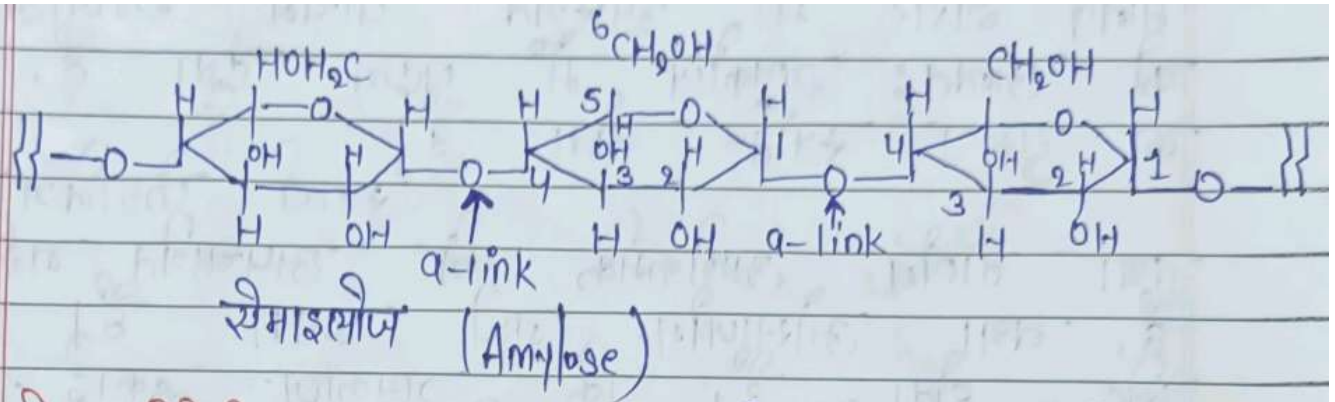 6
HOH₂C CH₂OH CH₂OH
H O H H 5 O H H O H
O OH H O 4 H OH 3 2 H 1 O 4 OH 3 2 H 1 O
H OH H OH H OH
a-link a-link
ऐमाइलोज (Amylose)